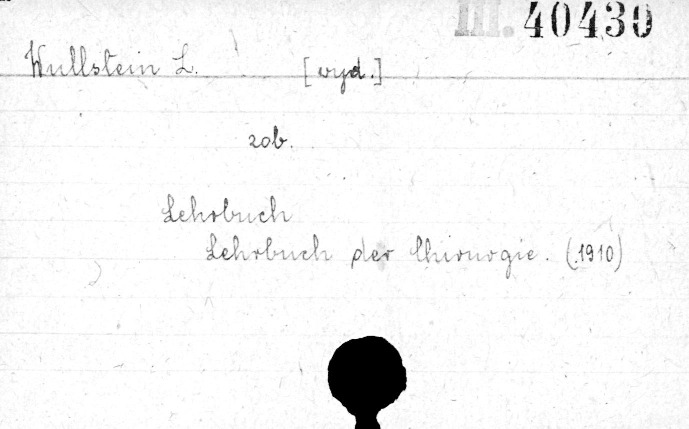 III. 40430
Wullstein L. [wyd.]
zob.
Lehrbuch
Lehrbuch der Chirurgie. (1910)